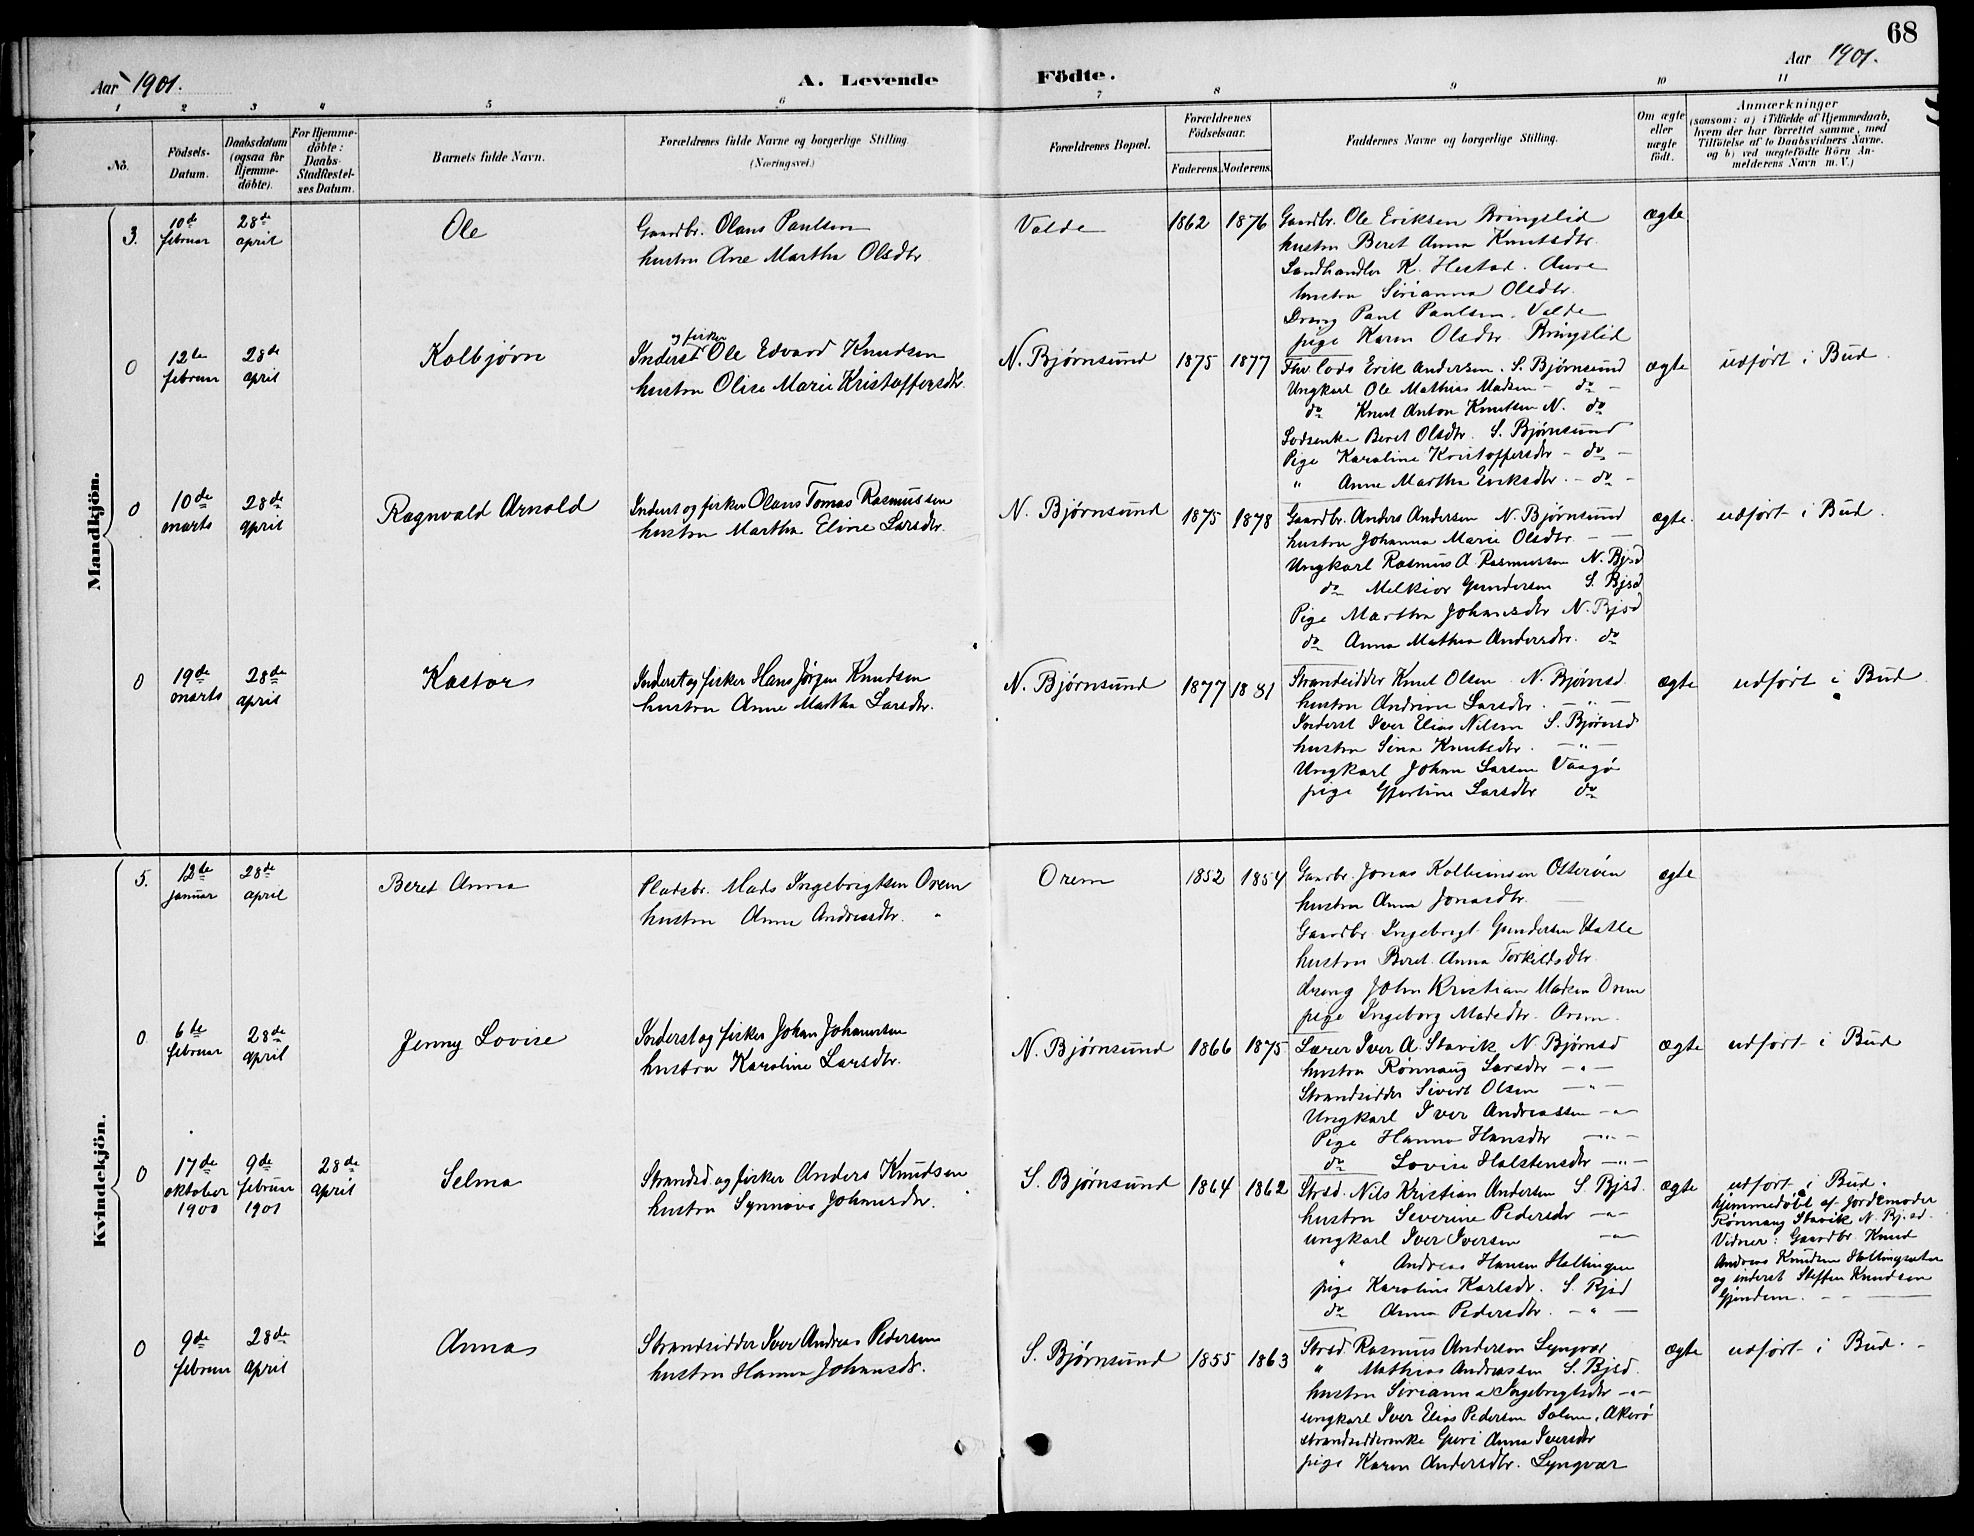 68
Aar 1901.
A. Levende Födte.
Aar 1901.
1 2 3 4 5 6 7 8 9 10 11
Nô.
Födsels-Datum.
Daabsdatum (ogsaa for Hjemme-döbte).
For Hjemme-döbte: Daabs-Stadfæstel-ses Datum.
Barnets fulde Navn.
Forældrenes fulde Navne og borgerlige Stilling (Næringsvei.)
Forældrenes Bopæl.
Forældrenes Födselsaar.
Faderens. Moderens.
Faddernes Navne og borgerlige Stilling.
Om ægte eller uægte födt.
Anmærkninger
(saasom: a) i Tilfælde af Hjemmedaab, hvem der har forrettet samme, med Tilföielse af to Daabsvidners Navne. og b) ved uægtefödte Börn An-melderens Navn m. V.)
Mandkjön.
3. 10de februar 28de april Ole
Gaardbr. Olaus Paulsen
hustru Ane Martha Olsdtr.
Valde 1862 1876
Gaardbr. Ole Eriksen Bringslid
hustru Beret Anna Knutsdtr.
Landhandler K. Hestad. Aure
hustru Sirianna Olsdtr.
Dreng Paul Paulsen. Valde
pige Karen Olsdtr Bringslid
ægte
0 12te februar 28de april Kolbjørn
og fisker
Inderst Ole Edvard Knudsen
hustru Olise Marie Kristoffersdtr.
N. Bjørnsund 1875 1877
Fhv. Lods Erik Andersen. S. Bjørnsund
Ungkarl Ole Mathias Madsen - do -
do Knut Anton Knutsen N. do
Lodsenke Beret Olsdtr. S. Bjørnsund
Pige Karoline Kristoffersdtr - do -
" Anne Martha Eriksdtr. - do -
ægte udført i Bud.
0 10de marts 28de april Ragnvald Arnold
Inderst og fisker Olaus Tomas Rasmussen
hustru Martha Eline Larsdtr.
N. Bjørnsund 1875 1878
Gaardbr. Anders Andersen N. Bjørnsund
hustru Johanna Marie Olsdtr - -
Ungkarl Rasmus A Rasmussen N. Bjsd
do Melkior Gundersen S. Bjsd
Pige Martha Johansdtr N. Bjsd
do Anna Mathea Andersdtr. do
ægte. udført i Bud.
0 19de marts 28de april Kastor
Inderst og fisker Hans Jørgen Knudsen
hustru Anne Martha Larsdtr.
N. Bjørnsund 1877 1881
Strandsidder Knut Olsen N. Bjørnsd
hustru Andrine Larsdtr. - " -
Inderst Iver Elias Nilsen S. Bjørnsd
hustru Sina Knutsdtr. - " -
Ungkarl Johan Larsen Vaagø
pige Gjertine Larsdtr do
ægte udført i Bud.
Kvindekjön.
5. 12te januar 28de april Beret Anna
Pladsbr. Mads Ingebrigtsen Orem
hustru Anne Andreasdtr. "
Orem 1852 1854
Gaardbr. Jonas Kolbeinsen
hustru Anna Jonasdtr. -
Gaardbr. Ingebrigt Gundersen Hatle
hustru Beret Anna Torkildsdtr.
dreng John Kristian Madsen Orem
pige Ingeborg Madsdtr. Orem.
ægte
0 6te februar 28de april Jenny Lovise
Inderst og fisker Johan Johansen
hustru Karoline Larsdtr.
N. Bjørnsund 1866 1875
Lærer Iver A. Stavik N Bjørnsd
hustru Rønnaug Larsdtr - " -
Strandsidder Sivert Olsen - " -
Ungkarl Iver Andreassen - " -
Pige Hanna Hansdtr - " -
do Lovise Halstensdtr - " -
ægte udført i Bud
0 17de oktober 1900 9de februar 1901 28de april Selma
Strandsd. og fisker Anders Knudsen
hustru Synnøve Johansdtr.
S. Bjørnsund 1864 1862
Strsd. Nils Kristian Andersen S. Bjsd.
hustru Severine Pedersdtr - " -
ungkarl Iver Iversen - " -
" Andreas Hansen Hallingen
pige Karoline Karlsdtr. S. Bjsd
do Anna Pedersdtr. - " -
ægte udført i Bud.
hjemmedøbt af Jordemoder
Rønnaug Stavik N. Bj.sd.
Vidner: Gaardbr. Knud
Andreas Knudsen
og inderst Steffen Knudsen
Gjendem. - -
0 9de februar 28de april Anna
Strandsidder Iver Andreas Pedersen
hustru Hanna Johansdtr.
S. Bjørnsund 1855 1863
Strsd. Rasmus Andersen Lyngvær
" Mathias Andreassen S. Bjsd.
hustru Sirianna Ingebrigtsdtr - " -
ungkarl Iver Elias Pedersen Solem, Akerø
strandsidderenke Guri Anna Iversdtr
pige Karen Andersdtr. Lyngvær
ægte udført i Bud. -